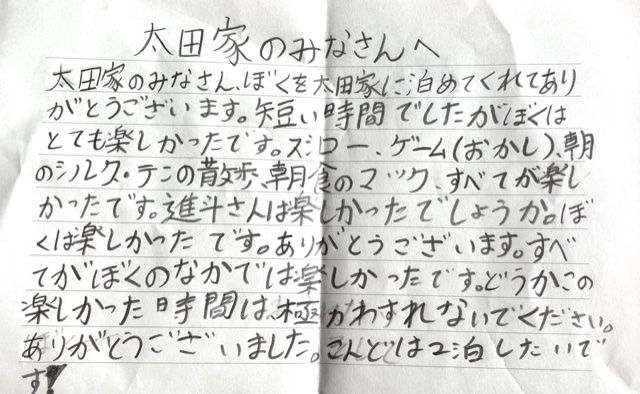 太田家のみなさんへ
太田家のみなさん、ぼくを太田家に泊めてくれてあり
がとうございます。短い時間でしたがぼくは
とても楽しかったです。スシロー、ゲーム(おかし)、朝
のシルク・テンの散歩、朝食のマック、すべてが楽し
かったです。進斗さんは楽しかったでしょうか。ぼ
くは楽しかったです。ありがとうございます。すべ
てがぼくのなかでは楽しかったです。どうかこの
楽しかった時間は、極力わすれないでください。
ありがとうございました。こんどは2泊したいで
す!